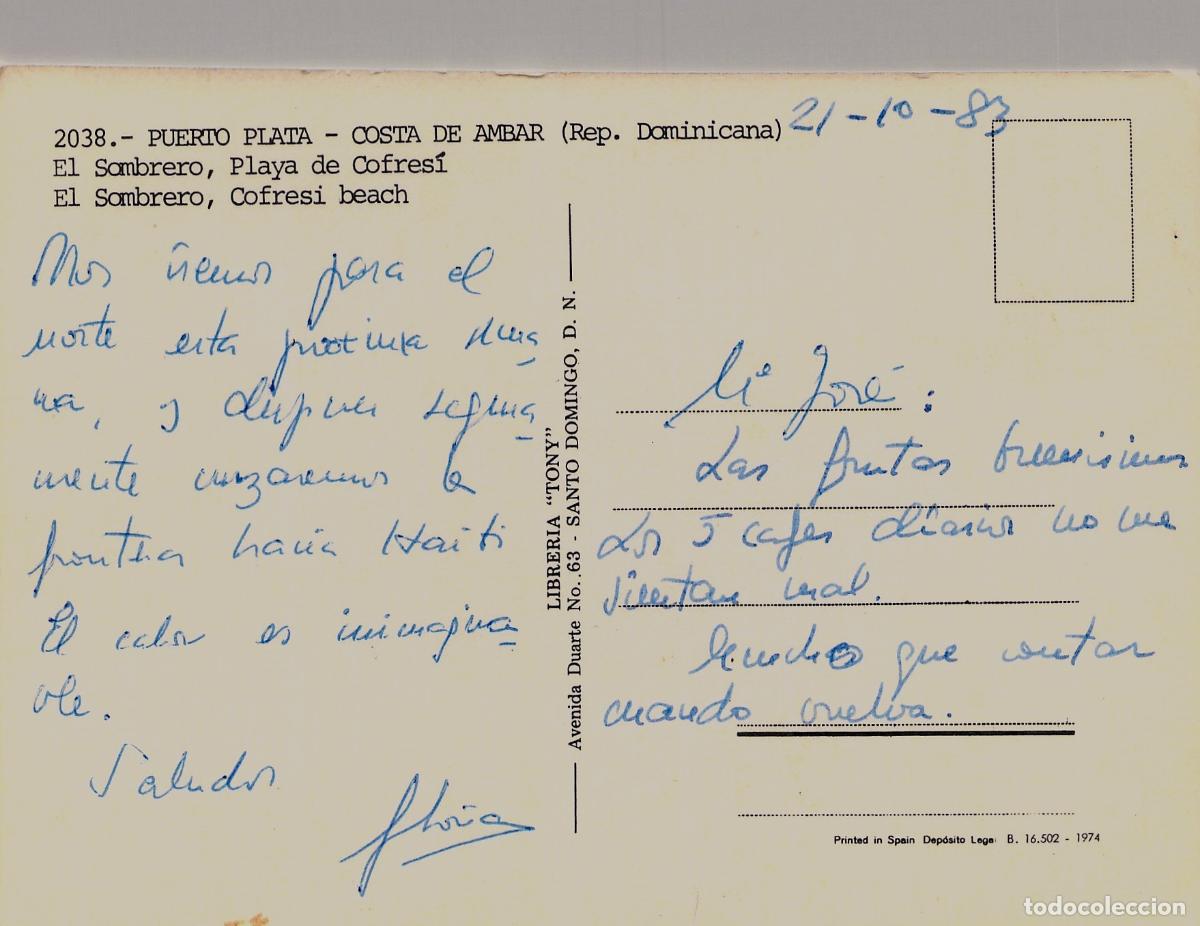 21-10-83
2038.- PUERTO PLATA - COSTA DE AMBAR (Rep. Dominicana)
El Sombrero, Playa de Cofresí
El Sombrero, Cofresi beach
Nos iremos para el
norte esta próxima sema
na, y despues segura
mente cruzaremos la
frontera hacia Haiti
El calor es inimagina
ble.
Saludos
Gloria
LIBRERIA "TONY"
Avenida Duarte No..63 - SANTO DOMINGO, D. N.
Mª José:
Las frutas buenisimas
Los 5 cafes diarios no me
sientan mal.
Mucho que contar
cuando vuelva.
Printed in Spain Depósito Legal B. 16.502 - 1974
todocoleccion